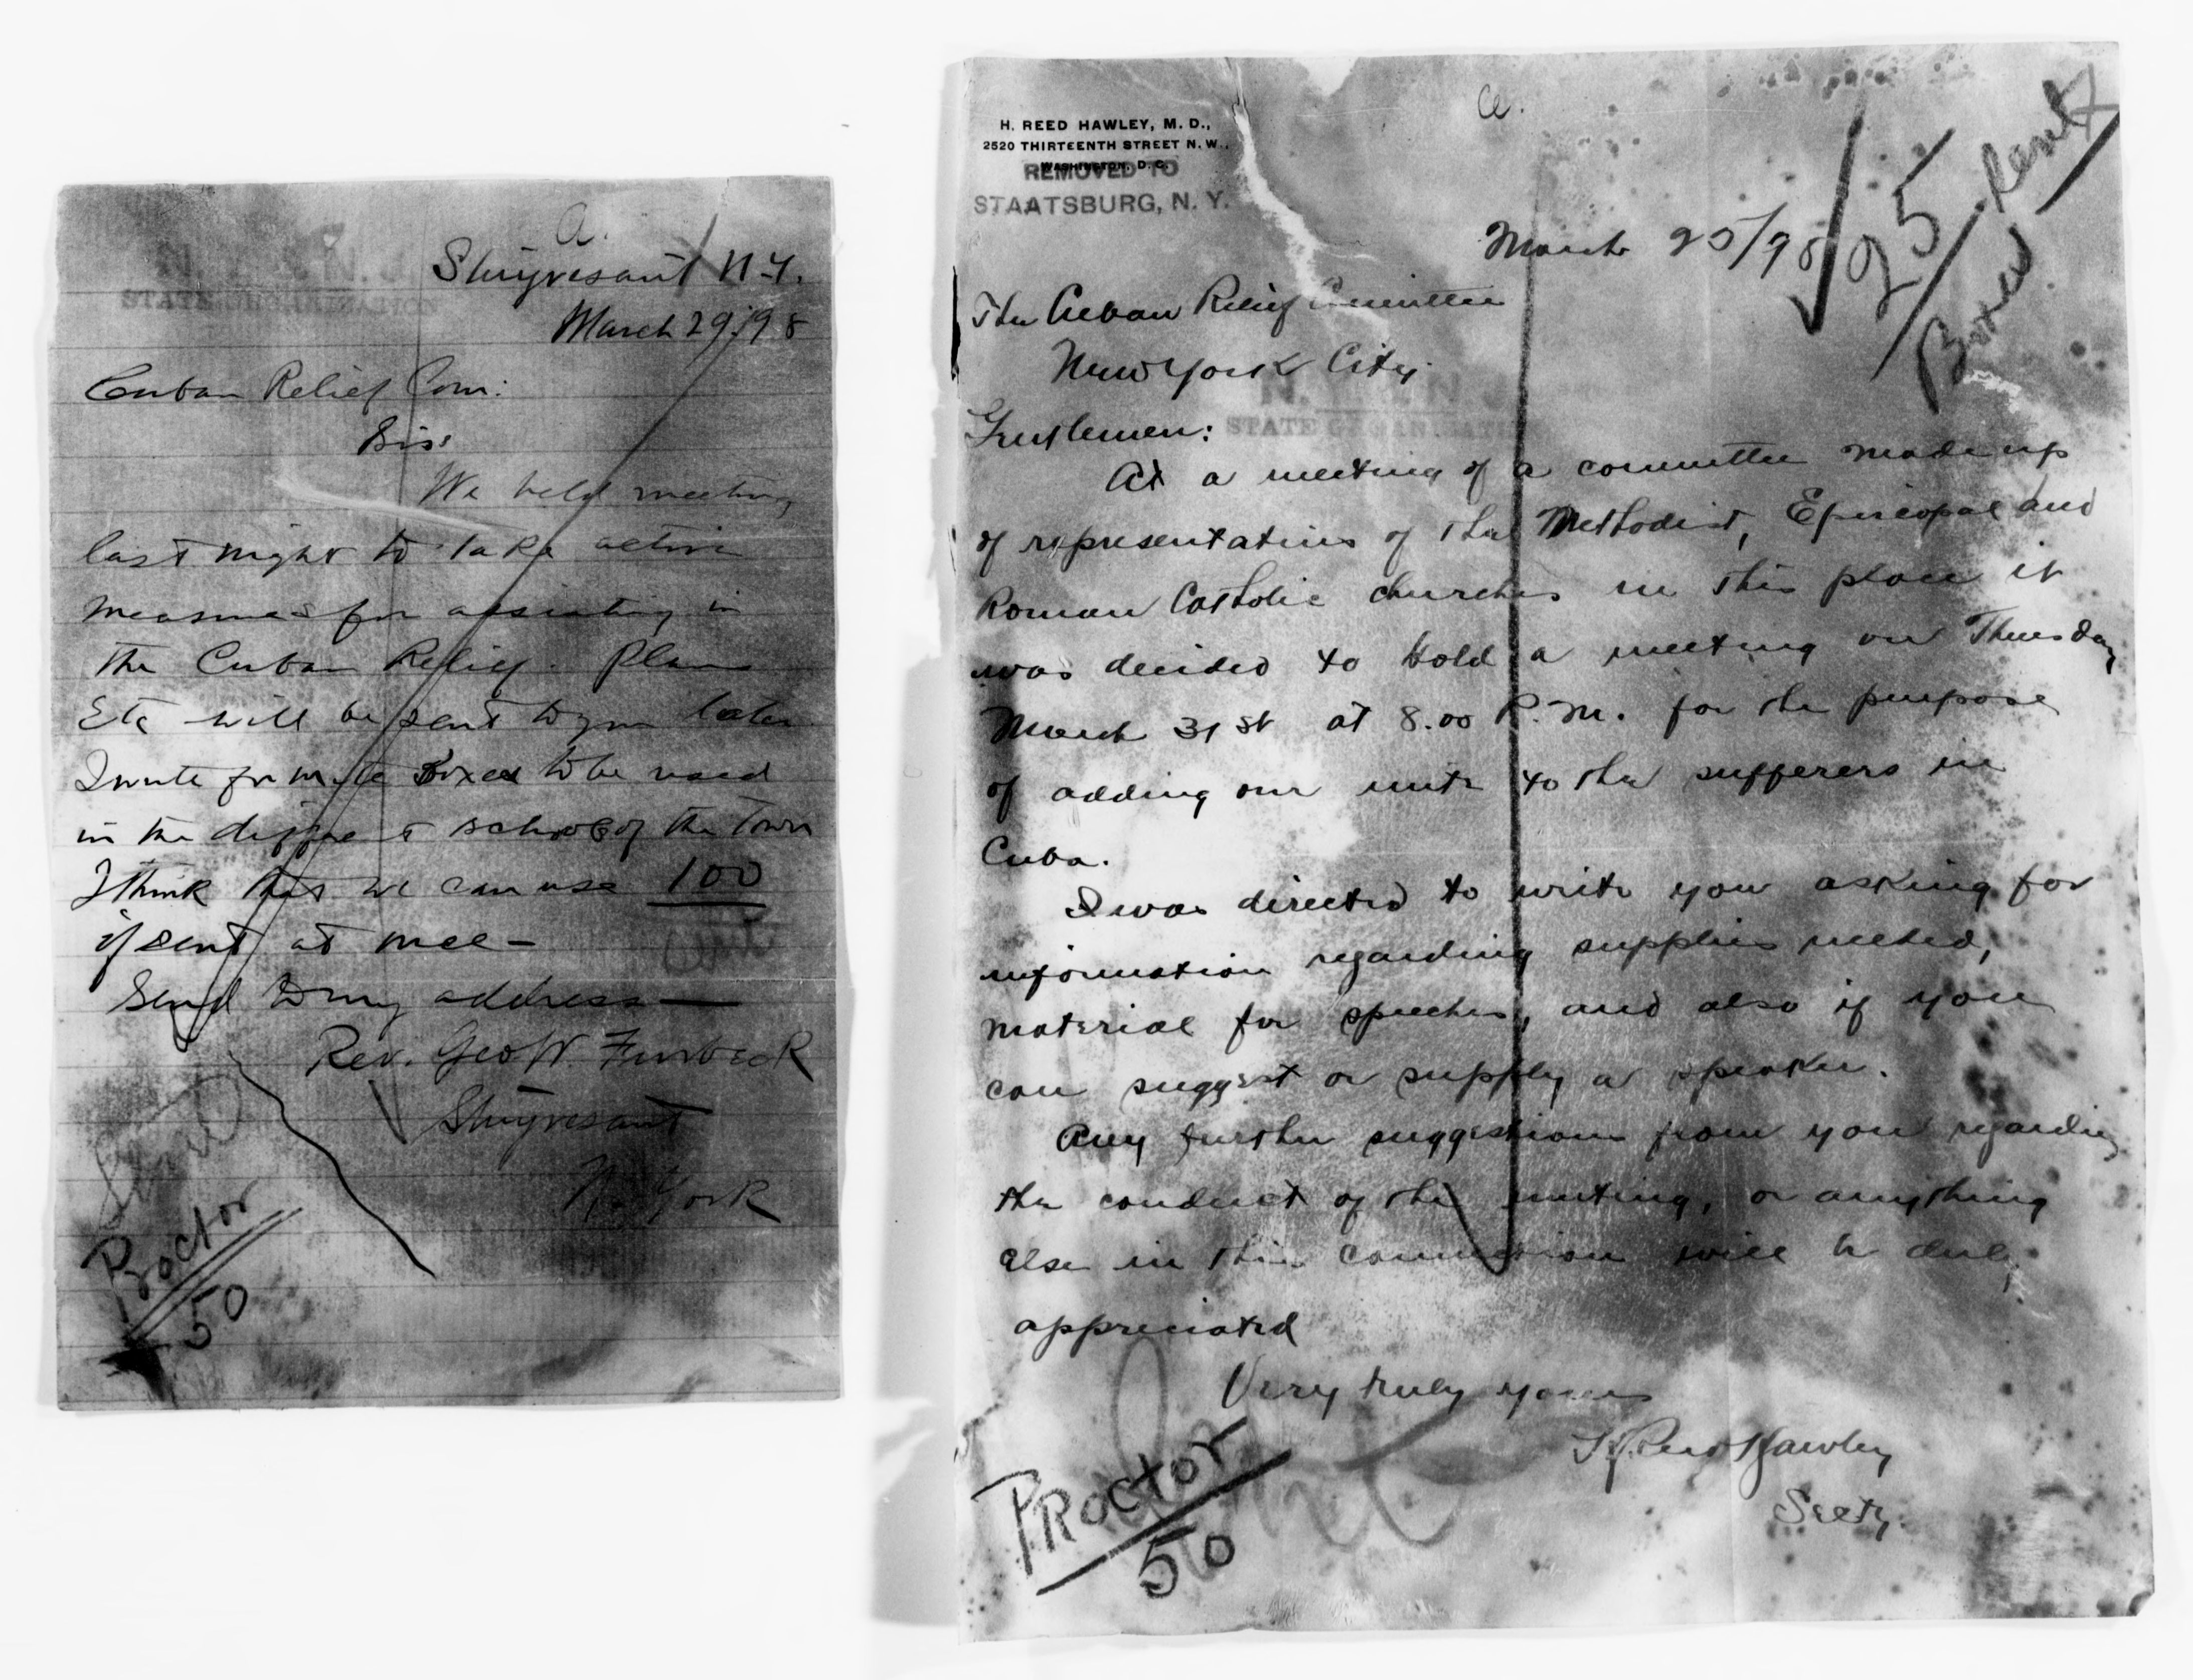 a.
N. Y. & N. J.
STATE ORGANIZATION
Stuyvesant N.Y.
March 29/98
Cuban Relief Com:
Sirs:
We held meeting
last night to take active
measures for assisting in
the Cuban Relief. Plans
Etc will be sent to you later
I write for mite Boxes to be used
in the different schools of the Town
I think that we can use 100
if sent at once—
Send to my address—
Rev. Geo W. Furbeck
Stuyvesant
N. York
Sent
Proctor
50
a.
H. REED HAWLEY, M. D.,
2520 THIRTEENTH STREET N. W.,
WASHINGTON, D. C.
REMOVED TO
STAATSBURG, N. Y.
25 sent
Boxes
March 25/98
The Cuban Relief Committee
New York City.
N. Y. & N. J.
Gentlemen:
STATE ORGANIZATION
At a meeting of a committee made up
of representatives of the Methodist, Episcopal and
Roman Catholic churches in this place it
was decided to hold a meeting on Thursday
March 31st at 8.00 P.M. for the purpose
of adding our mite to the sufferers in
Cuba.
I was directed to write you asking for
information regarding supplies needed,
material for speeches, and also if you
can suggest or supply a speaker.
Any further suggestions from you regarding
the conduct of the meeting, or anything
else in this connection will be duly
appreciated
Very truly yours
H. Reed Hawley
Secty.
Sent
Proctor
50